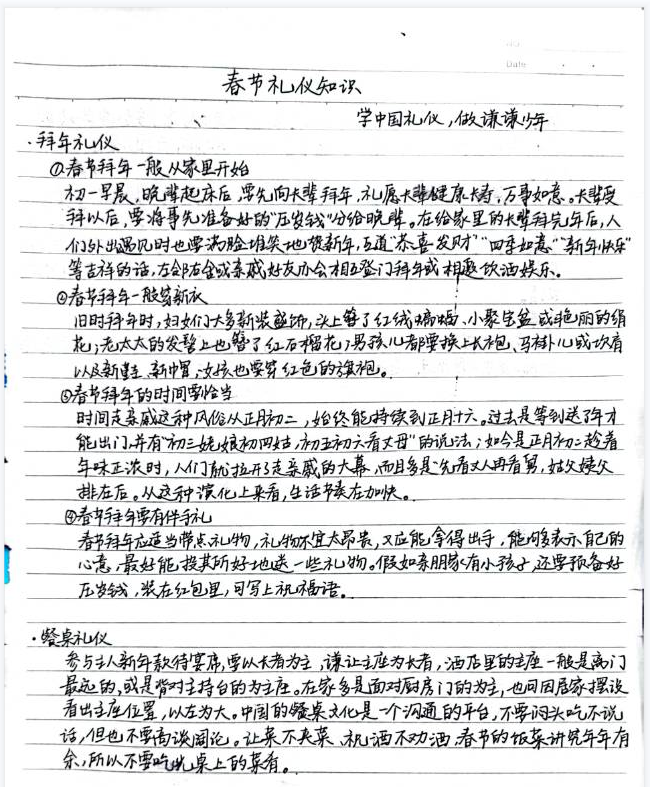 Date
春节礼仪知识
学中国礼仪,做谦谦少年
·拜年礼仪
①春节拜年一般从家里开始
初一早晨,晚辈起床后,要先向长辈拜年,礼愿长辈健康长寿,万事如意。长辈受
拜以后,要将事先准备好的"压岁钱"分给晚辈。在给家里的长辈拜完年后,人
们外出遇见时也要满脸堆笑地恭新年,互道"恭喜发财""四季如意""新年快乐"
等吉祥的话,左邻右舍或亲戚好友亦会相互登门拜年或相邀饮酒娱乐。
②春节拜年一般穿新衣
旧时拜年时,妇女们大多新装盛饰,头上簪了红绒蝙蝠、小聚宝盆或艳丽的绢
花;老太太的发髻上也簪了红石榴花;男孩儿都要换上长袍、马褂儿或坎肩
以及新鞋、新帽;女孩也要穿红色的旗袍。
③春节拜年的时间要恰当
时间走亲戚这种风俗从正月初二,始终能持续到正月十六。过去是等到送了年才
能出门,并有"初三姥娘初四姑,初五初六看丈母"的说法;如今是正月初二趁着
年味正浓时,人们就拉开了走亲戚的大幕,而且多是先看丈人再看舅,姑父姨父
排在后。从这种演化上来看,生活节奏在加快。
④春节拜年要有伴手礼
春节拜年应适当带点礼物,礼物不宜太昂贵,又应能拿得出手,能够表示自己的
心意,最好能投其所好地送一些礼物。假如亲朋家有小孩子,还要预备好
压岁钱,装在红包里,可写上祝福语。
·餐桌礼仪
参与主人新年款待宴席,要以长者为主,谦让主座为长者,酒店里的主座一般是离门
最远的,或是背对主持台的为主座。在家多是面对厨房门的为主,也同因居家摆设
看出主座位置,以左为大。中国的餐桌文化是一个沟通的平台,不要闷头吃不说
话,但也不要高谈阔论。让菜不夹菜、祝酒不劝酒,春节的饭菜讲究年年有
余,所以不要吃光桌上的菜肴。